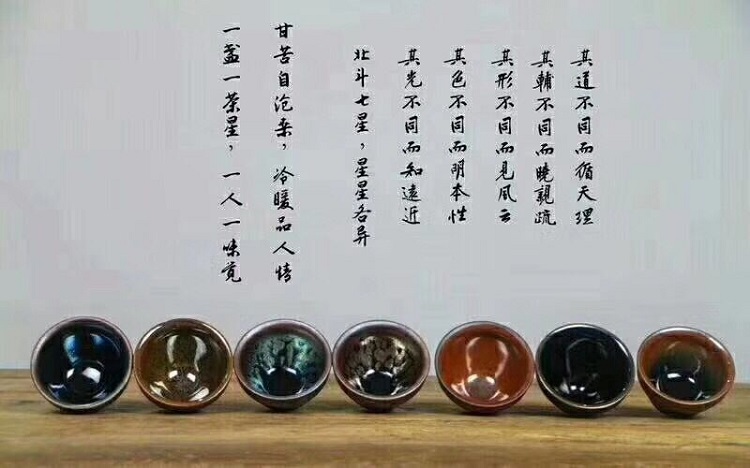 一盏一茶星，一人一味觉
甘苦自沧桑，冷暖品人情
北斗七星，星星各异
其光不同而知遠近
其色不同而明本性
其形不同而見風云
其輔不同而曉親疏
其道不同而循天理